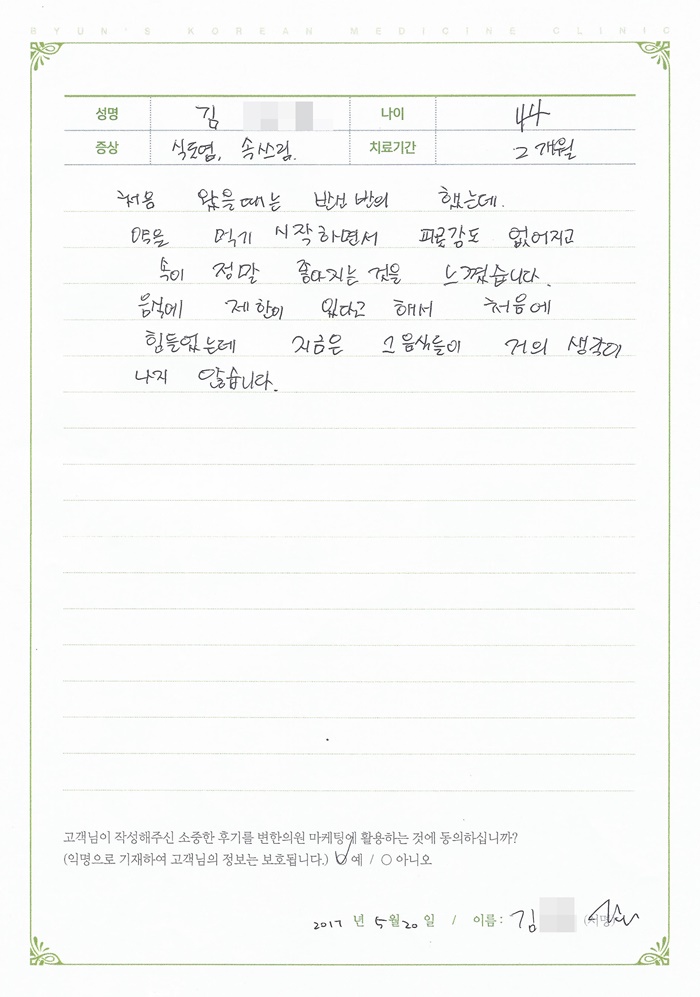 BYUN'S KOREAN MEDICINE CLINIC
성명 김 나이 44
증상 식도염, 속쓰림. 치료기간 2개월
처음 왔을때는 반신 반의 했는데.
약을 먹기 시작하면서 피곤감도 없어지고
속이 정말 좋아지는 것을 느꼈습니다.
음식에 제한이 있다고 해서 처음에
힘들었는데 지금은 그 음식들이 거의 생각이
나지 않습니다.
고객님이 작성해주신 소중한 후기를 변한의원 마케팅에 활용하는 것에 동의하십니까?
(익명으로 기재하여 고객님의 정보는 보호됩니다.) 예 / 아니오
2017 년 5월 20 일 / 이름 : 김 (서명)